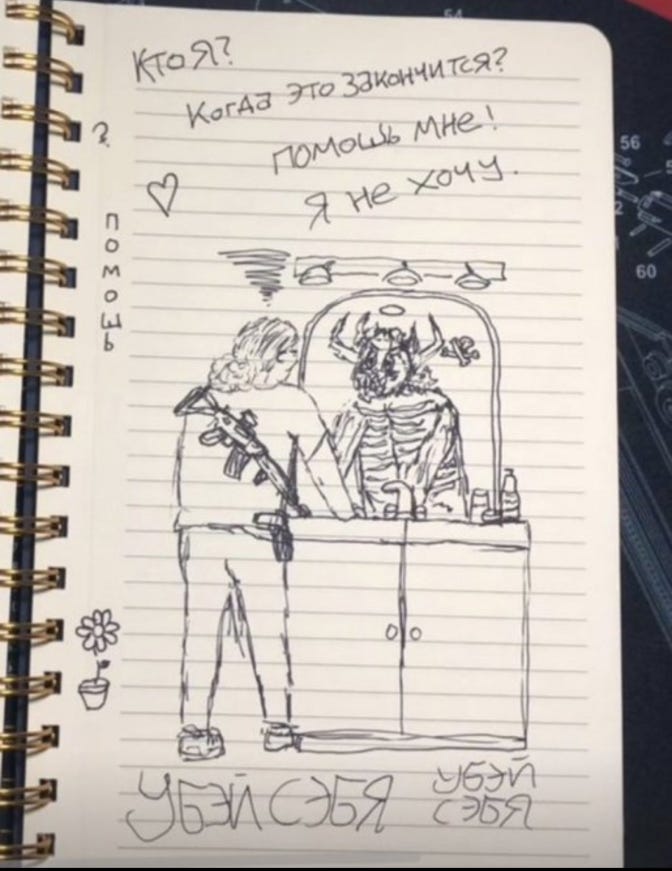 Кто я?
Когда это закончится?
помошь мне!
Я не хочу.
?
помошь
УБЭЙ СЭБЯ
УБЭЙ
СЭБЯ
54
56
60